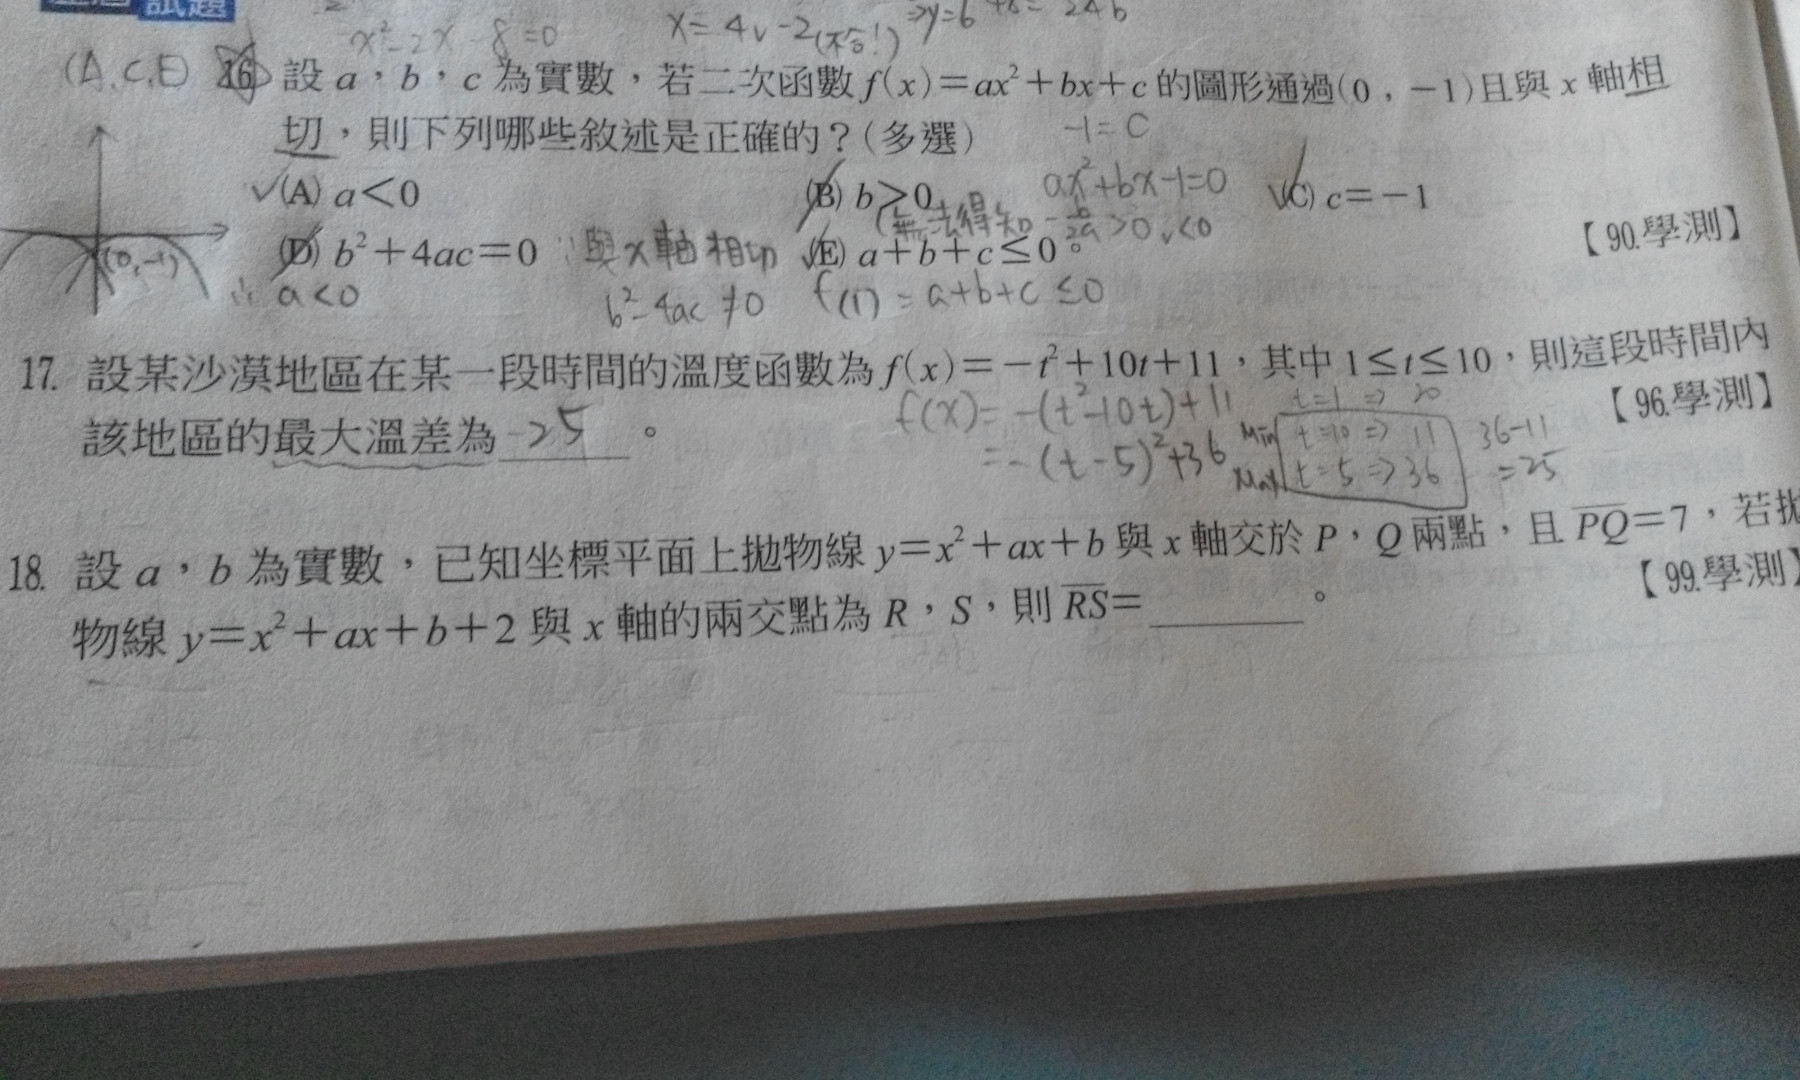 試題
x²-2x-8=0
x=4v-2(不合!) ⇒y=6
(A.C.E) 16. 設 a，b，c 為實數，若二次函數 f(x)=ax²+bx+c 的圖形通過(0，-1)且與 x 軸相
切，則下列哪些敘述是正確的？(多選) -1=C
✓(A) a<0 (B) b>0 ax²+bx-1=0 ✓(C) c=-1
(無法得知 -b/2a >0 v <0
(D) b²+4ac=0 ∵與x軸相切 ✓(E) a+b+c≤0。 【90.學測】
(0,-1) ∴ a<0 b²-4ac≠0 f(1)=a+b+c≤0
17. 設某沙漠地區在某一段時間的溫度函數為 f(x)=-t²+10t+11，其中 1≤t≤10，則這段時間內
該地區的最大溫差為 25 。 【96.學測】
f(x)=-(t²-10t)+11 t=1 ⇒ 20
=-(t-5)²+36 Min t=10 ⇒ 11 36-11
Max t=5 ⇒ 36 =25
18. 設 a，b 為實數，已知坐標平面上拋物線 y=x²+ax+b 與 x 軸交於 P，Q 兩點，且 PQ=7，若拋
物線 y=x²+ax+b+2 與 x 軸的兩交點為 R，S，則 RS=______。 【99.學測】